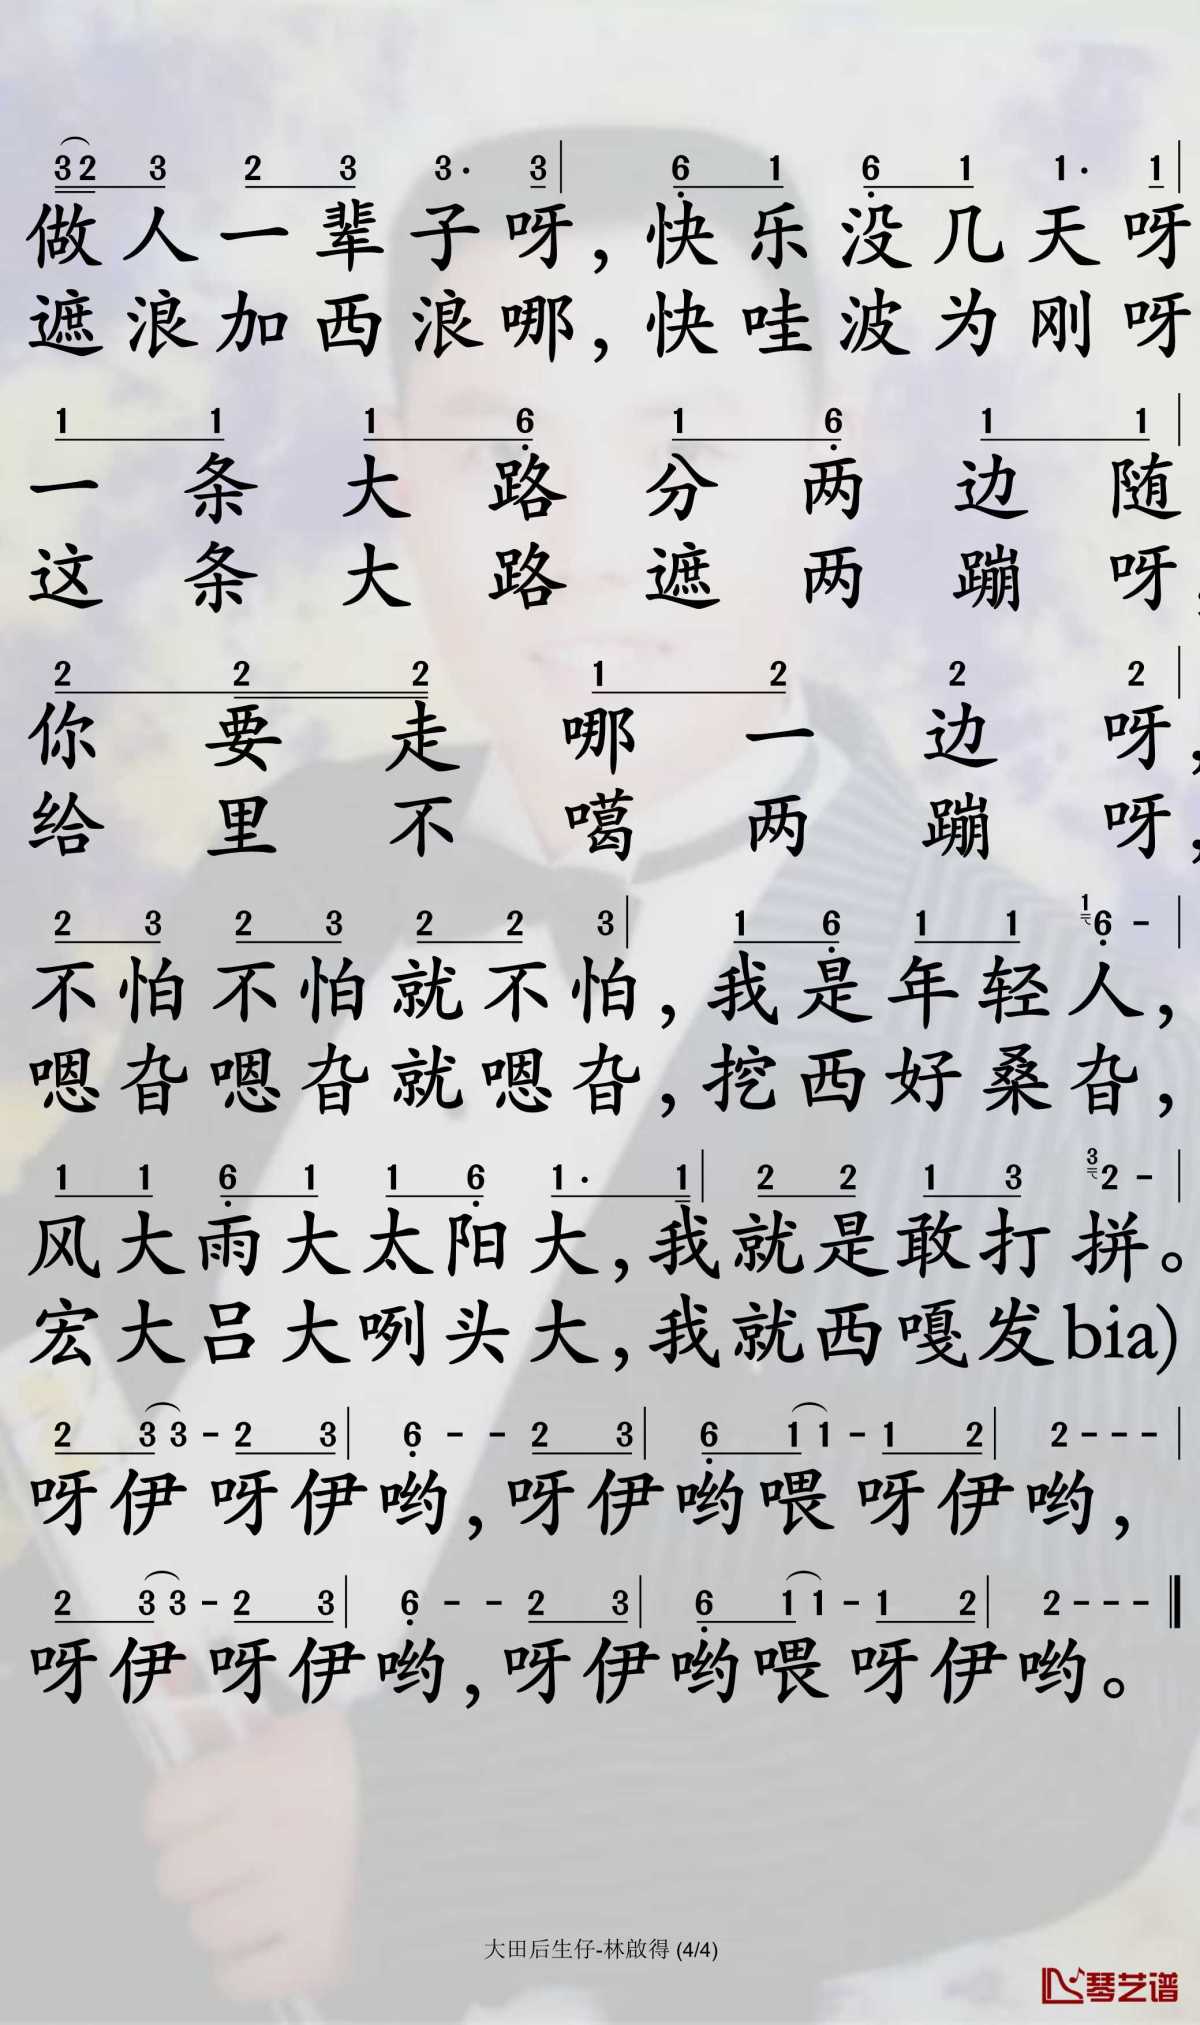 3 2 3 2 3 3· 3 | 6 1 6 1 1· 1 |
做人一辈子呀，快乐没几天呀
遮浪加西浪哪，快哇波为刚呀
1 1 1 6 1 6 1 1 |
一条大路分两边随
这条大路遮两蹦呀，
2 2 2 1 2 2 2 |
你要走哪一边呀，
给里不噶两蹦呀，
2 3 2 3 2 2 3 | 1 6 1 1 1 6 - |
不怕不怕就不怕，我是年轻人，
嗯旮嗯旮就嗯旮，挖西好桑旮，
1 1 6 1 1 6 1· 1 | 2 2 1 3 3 2 - |
风大雨大太阳大，我就是敢打拼。
宏大吕大咧头大，我就西嘎发bia)
2 3 3 - 2 3 | 6 - - 2 3 | 6 1 1 - 1 2 | 2 - - - |
呀伊 呀伊哟，呀伊哟喂 呀伊哟，
2 3 3 - 2 3 | 6 - - 2 3 | 6 1 1 - 1 2 | 2 - - - ‖
呀伊 呀伊哟，呀伊哟喂 呀伊哟。
大田后生仔-林啟得 (4/4)
琴艺谱